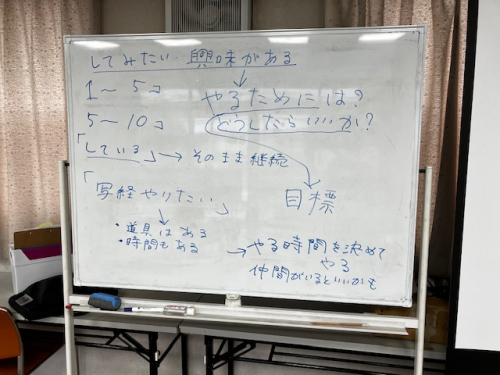 してみたい・興味がある
↓
1～5コ
やるためには?
5～10コ
どうしたらいいか?
「している」→そのまま継続
「写経やりたい」
目標
↓
・道具はある
・時間もある
→やる時間を決めて
やる
仲間がいるといいかも